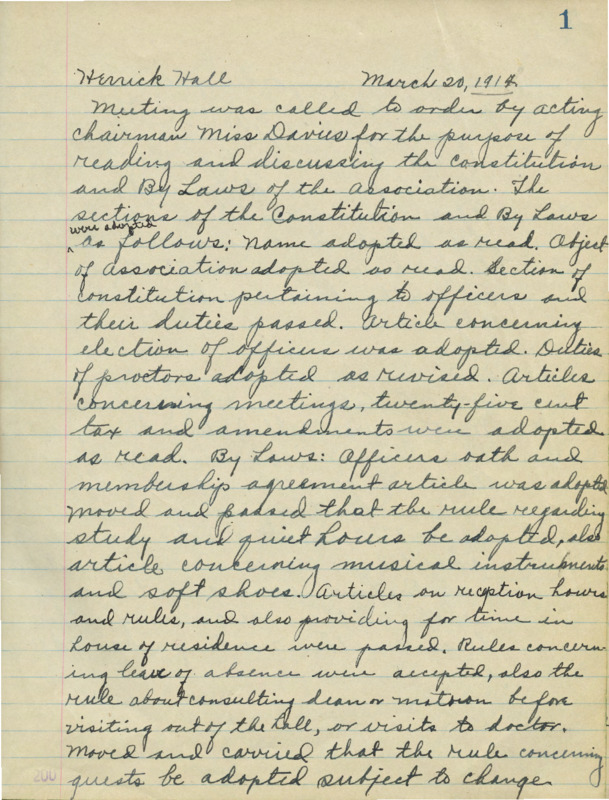 1
Herrick Hall March 20, 1914
Meeting was called to order by acting
chairman Miss Davies for the purpose of
reading and discussing the constitution
and By Laws of the association. The
sections of the Constitution and By Laws
were adopted
^ as follows: Name adopted as read. Object
of association adopted as read. Section of
constitution pertaining to officers and
their duties passed. Article concerning
election of officers was adopted. Duties
of proctors adopted as revised. Articles
concerning meetings, twenty-five cent
tax and amendments were adopted
as read. By Laws: Officers oath and
membership agreement article was adopted
Moved and passed that the rule regarding
study and quiet hours be adopted, also
article concerning musical instruments
and soft shoes. Articles on reception hours
and rules, and also providing for time in
house of residence were passed. Rules concern-
ing leave of absence were accepted, also the
rule about consulting dean or matron before
visiting out of the hall, or visits to doctor.
Moved and carried that the rule concerning
guests be adopted subject to change
200